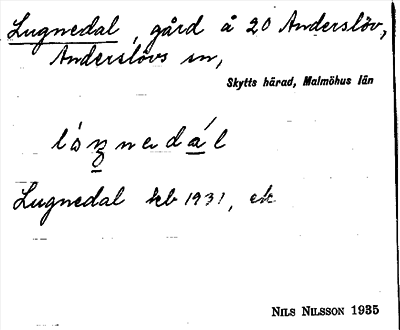 Lugnedal, gård å 20 Anderslöv,
Anderslövs sn,
Skytts härad, Malmöhus län
Lugnedal kb 1931, ek
NILS NILSSON 1935